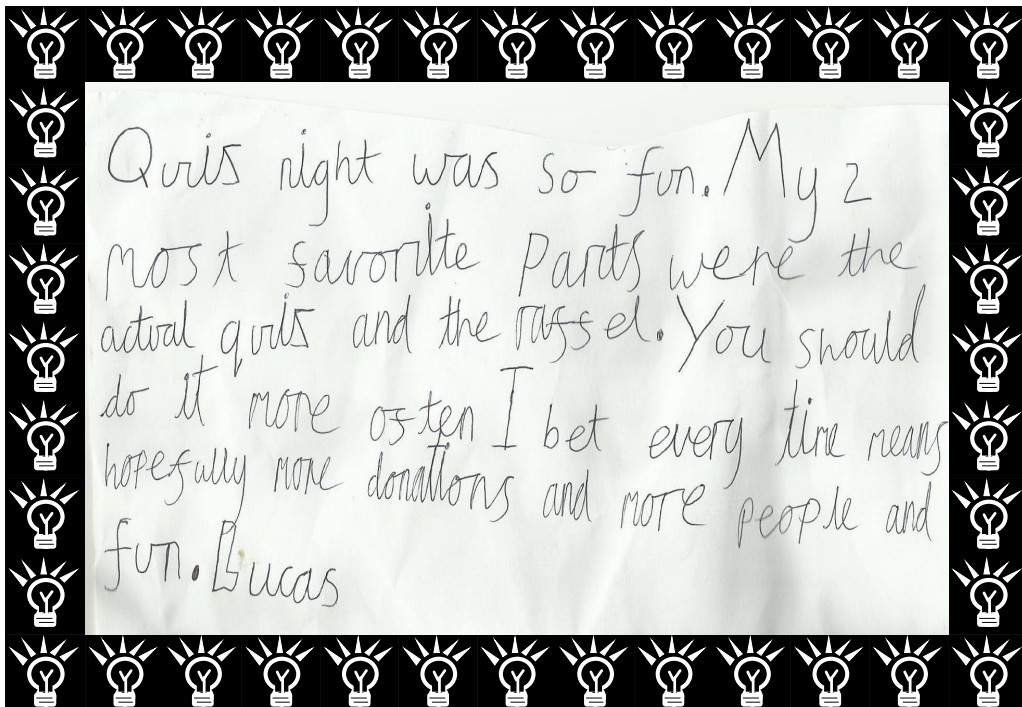 Quis night was so fun. My 2
most favorite parts were the
actual quis and the raffel. You should
do it more often I bet every time means
hopefully more donations and more people and
fun. Lucas